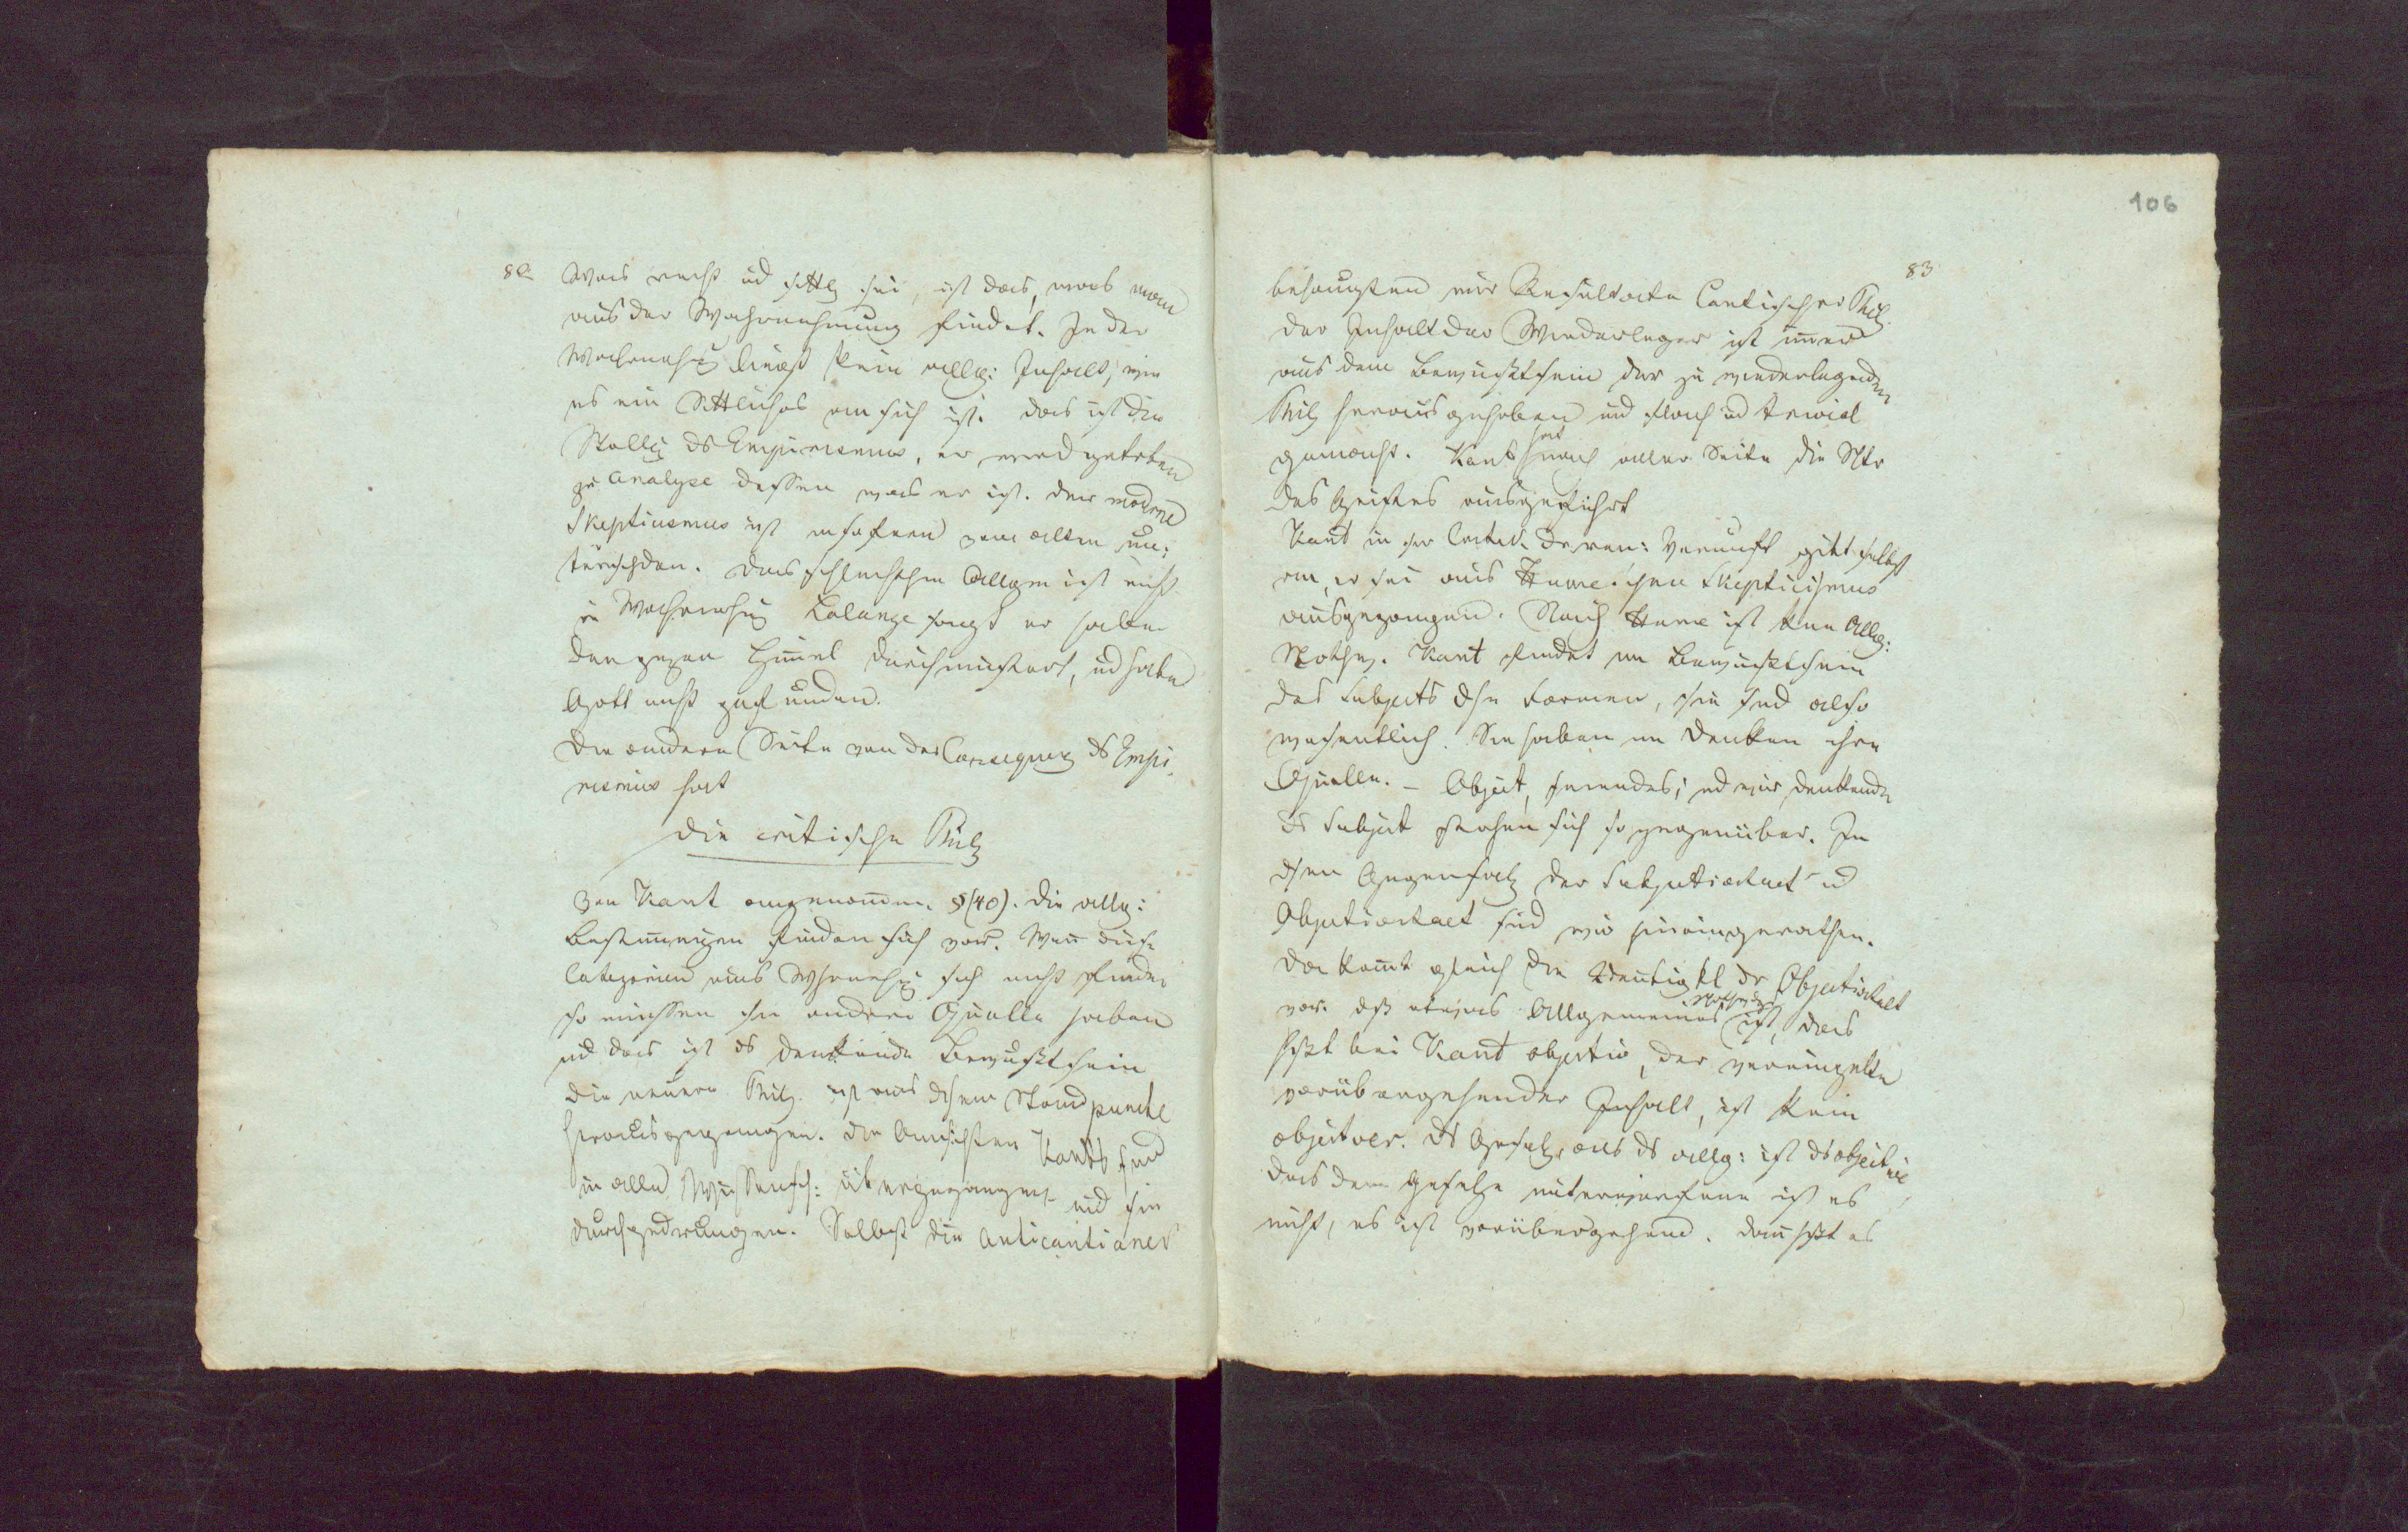 82
Was recht ud sittl sei, ist das, was man
aus der Wahrnehmung findet. In der
Wahrnehmg liegt kein allg: Inhalt, wie
es ein Sittliches an sich ist. das ist die
Stellg ds Empirismus, er wird getrieben
zu Analyse dessen was er ist. der moderne
Skepticismus ist insofern vom alten un:
terschden. das schlechthin Allgem ist nicht
in Wahrnehmg Lalange sagt er habe
den gzen Himel durchmustert, ud habe
Gott nicht gefunden.
Die andere Seite von der Consequez ds Empi
rismus hat
die critische Philz
von Kant angenomen. §(40). die allg:
Bestimungen finden sich vor. Wen diese
Categorien aus Whrnehmg sich nicht finden
so müssen sie andere Quelle haben
ud das ist ds denkende Bewußtsein
die neuere Philz. ist aus dsem Standpuncte
herausgegangen. die Ansichten Kants sind
in alle Wissensch: übergegangen und sie
durchgedrungen. Selbst die Anticantianer
106
83
behaupten nur Resultate Cantischer Phil.
der Inhalt der Wiederleger ist imer
aus dem Bewußtsein der zu wiederlegenden
Philz herausgehoben und flach ud trivial
gemacht. Kant hat nach aller Seite die Ntr
des Geistes ausgeführt
Kant in der Critik der rein: Vernunft gibt selbst
an, er sei aus Hume'schen Skepticismus
ausgegangen. Nach Hume ist kein Allg:
Nothw. Kant findet im Bewußtsein
des Subjects dse Formen, sie sind also
wesentlich. Sie haben im Denken ihre
Quelle. – Object, seiendes; ud wir denkende
ds Subject stehen sich so gegenüber. In
dsen Gegensatz der Subjectivitaet ud
Objectivitaet sind wir hineingerathen.
da komt gleich die Zweideutigkt dr Objectivitaet
vor. dß etwas Allgemeines Nothwdg ist, das
heißt bei Kant objectiv, der vereinzelte
vorübergehender Inhalt, ist kein
objectiver. ds Gesetz, als ds allg: ist ds objective
das dem Gesetze unterworfene ist es
nicht, es ist vorübergehend. dan heißt es